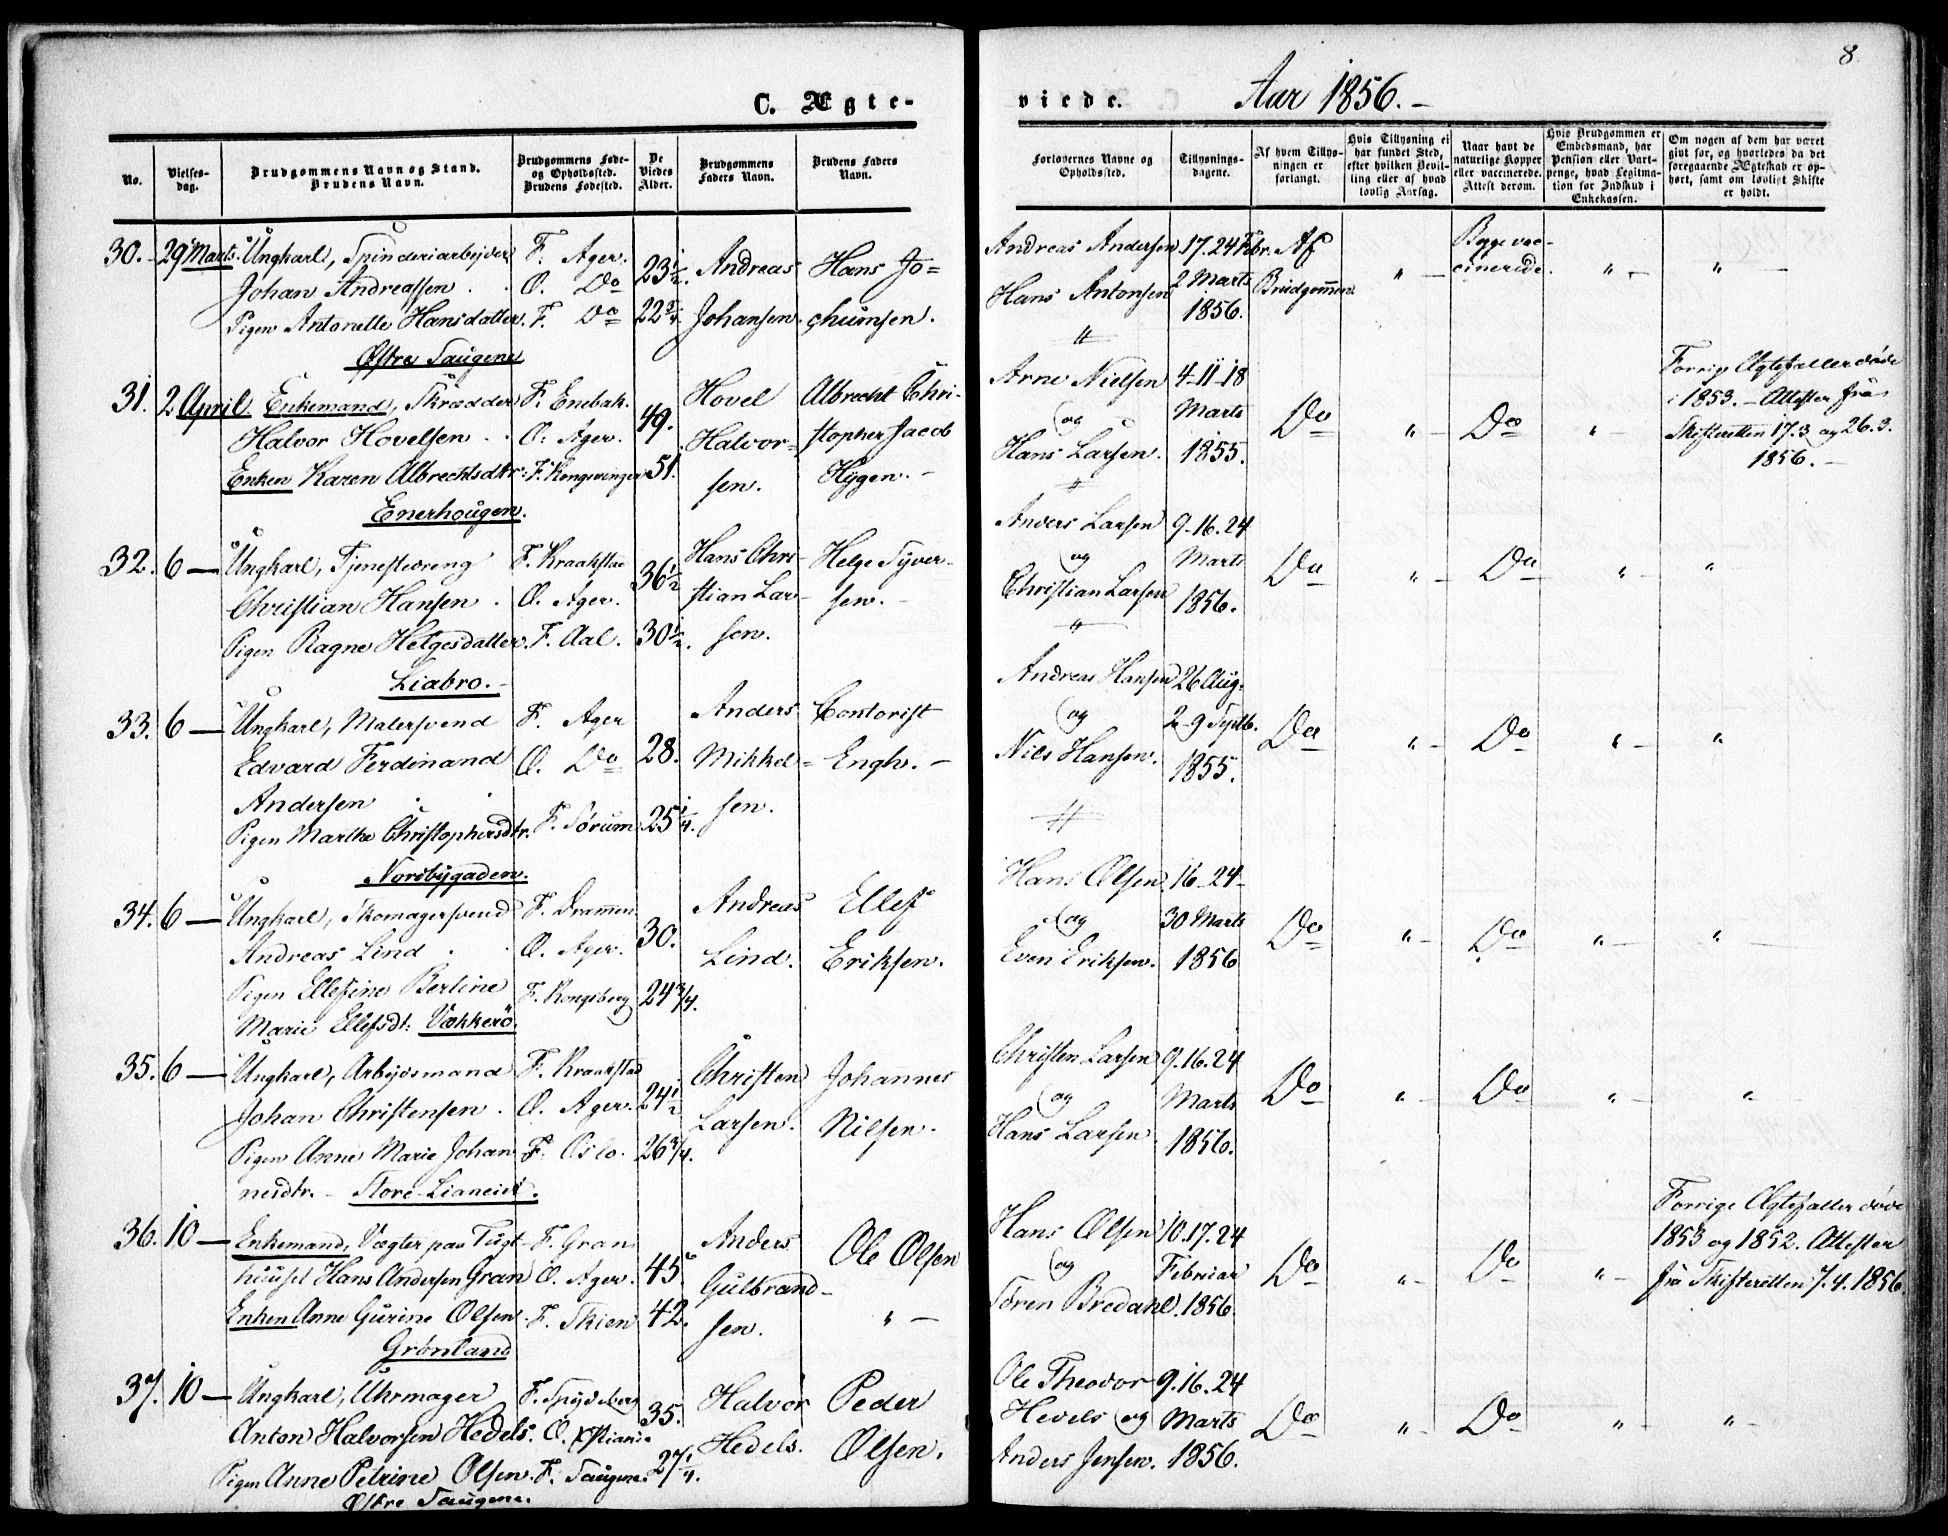 8
C. Ægte-
viede.
Aar 1856.-
No.
Vielses-
dag.
Brudgommens Navn og Stand.
Brudens Navn.
Brudgommens Føde-
og Opholdssted.
Brudens Fødested.
De
Viedes
Alder.
Brudgommens
Faders Navn.
Brudens Faders
Navn.
Forlovernes Navne og
Opholdssted.
Tillysnings-
dagene.
Af hvem Tillys-
ningen er
forlangt.
Hvis Tillysning ei
har fundet Sted,
efter hvilken Bevil-
ling eller af hvad
lovlig Aarsag.
Naar havt de
naturlige Kopper
eller vaccinerede.
Attest derom.
Hvis Brudgommen er
Embedsmand, har
Pension eller Vart-
penge, hvad Legitima-
tion for Indskud i
Enkekassen.
Om nogen af dem har været
givt før, og hvorledes da det
foregaaende Ægteskab er op-
hørt, samt om lovligt Skifte
er holdt.
30. 29 Marts. Ungkarl, Spinderiarbejder F. Ager. 23½. Andreas Hans Jo=
Johan Andreassen . . O. Do
Pigen Antonette Hansdatter. F. Do 22¾. Johansen. chumsen.
Østre Saugene
Andreas Andersen 17.24 Febr. Af
Hans Antonsen 2 Marts Brudgommen
1856.
" - Begge vac-
cinerede. " - " -
31. 2 April. Enkemand, Skrædder F. Enebak. 49. Hovel Albrecht Chri-
Halvor Hovelsen . . O. Ager. Halvor= stopher Jacob
Enken Karen Albrechtsdtr. F. Kongsvinger 51. sen. Hygen. -
Enerhougen.
Arne Nielsen 4-11-18
og Marts Do " - Do " -
Hans Larsen. 1855.
Forrige Ægtefaller døde
i 1853. - Attester fra
Skifteretten 17.3 og 26.3.
1856. -
32. 6 - Ungkarl, Tjenestdreng F. Kraakstad 36½ Hans Chri- Helge Syver-
Christian Hansen . O. Ager. stian Lar- sen. -
Pigen Ragne Helgesdatter. F. Aal. 30½. sen.
Liabro. -
Anders Larsen 9-16.24
og Marts Do " - Do " - "
Christian Larsen 1856.
33. 6 - Ungkarl, Malersvend F. Ager 28. Anders Contorist
Edvard Ferdinand O. Do Mikkel= Engh. -
Andersen . . sen.
Pigen Marthe Christophersdtr. F. Sørum 25¼.
Norbygaden.
Andreas Hansen 26 Aug.
og 2-9 Septb. Do " - Do " - "
Nils Hansen. 1855.
34. 6 - Ungkarl, Skomagersvend F. Drammen 30. Andreas Ellef
Andreas Lind . . O. Ager. Lind. Eriksen.
Pigen Ellefine Berline F. Kongsberg 24¾.
Marie Ellefsdt: Vækkerö.
Hans Olsen 16-24-
og 30 Marts Do " - Do " - " -
Even Eriksen. 1856
35. 6 - Ungkarl, Arbejdsmand F. Kraakstad 24½ Christen Johannes
Johan Christensen . O. Ager. Larsen. Nilsen.
Pigen Anne Marie Johan F. Oslo. 26¾.
nesdtr. - Store Lianeiet.
Christen Larsen 9.16.24
og Marts Do " - Do " - "
Hans Larsen 1856.
36. 10 - Enkemand, Vægter paa Tugt- F. Gran 45. Anders Ole Olsen
huuset Hans Andersen Gran O. Ager. Gulbrand-
Enken Anne Gurine Olsen. F. Skien 42. sen. " -
Grønland
Hans Olsen 10.17.24
og Februar Do " - Do " -
Søren Bredahl. 1856.
Forrige Ægtefaller døde
1853 og 1852. Attester
fra Skifteretten 7.4.1856.
37. 10 - Ungkarl, Uhrmager F. Spydeberg 35. Halvor Peder
Anton Halvorsen Hedels. O. Xstiania Hedels. Olsen.
Pigen Anne Petrine Olsen. F. Saugene. 27¼.
Østre Saugene.
Ole Theodor 9.16.24
Hedels og Marts Do " - Do " - " -
Anders Jensen. 1856.